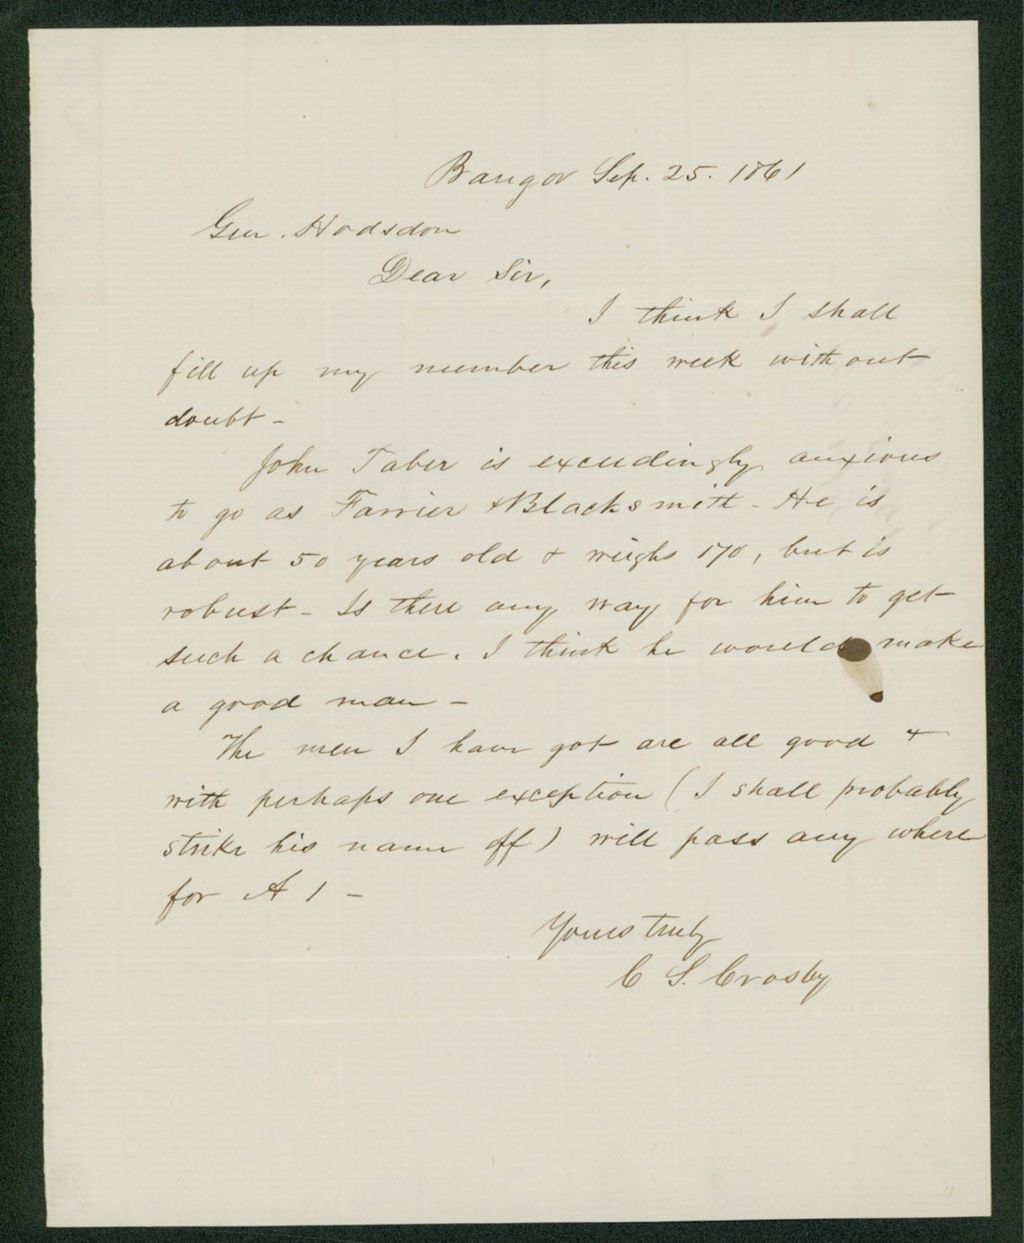 Bangor Sep. 25. 1861
Gen. Hodsdon
Dear Sir,
I think I shall
fill up my number this week without
doubt -
John Taber is exceedingly anxious
to go as Farrier & Blacksmith - He is
about 50 years old & weighs 170, but is
robust - Is there any way for him to get
such a chance. I think he would make
a good man -
The men I have got are all good &
with perhaps one exception (I shall probably
strike his name off) will pass any where
for A 1 -
Yours truly
C S. Crosby